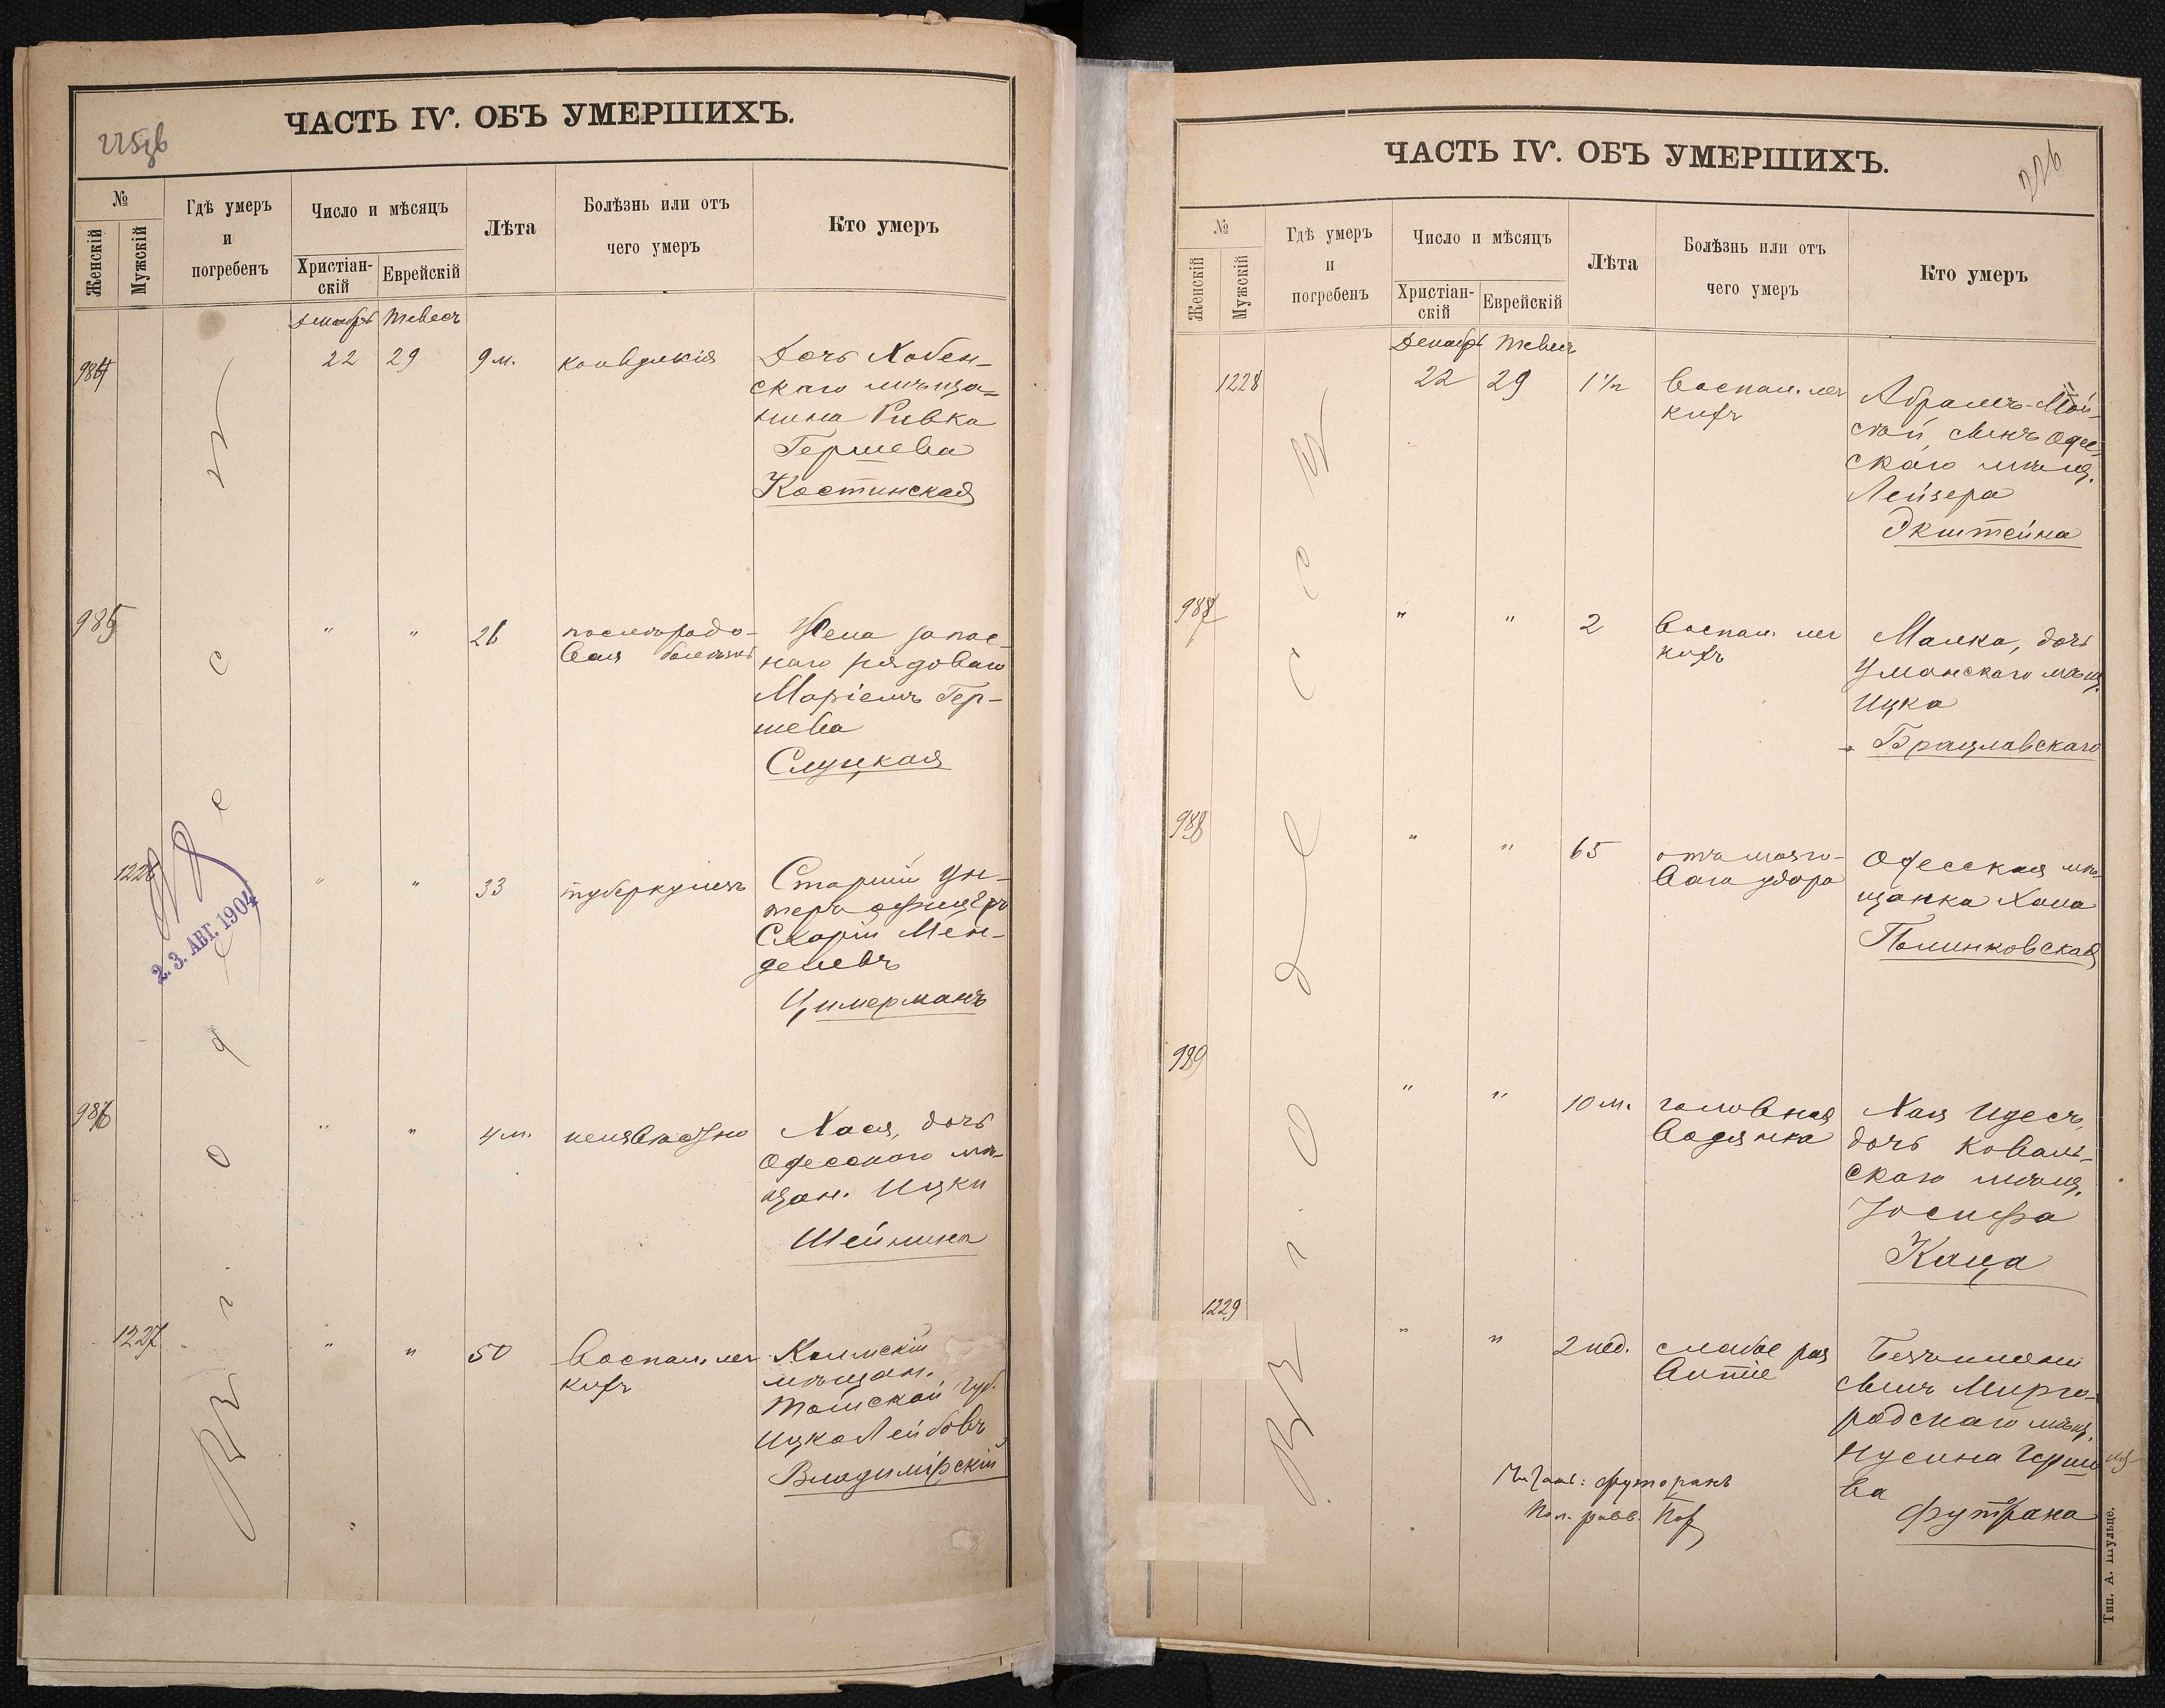 225зв
ЧАСТЬ IV. ОБЪ УМЕРШИХЪ.
№
Женскій
Мужскій
Гдѣ умеръ
и
погребенъ
Число и мѣсяцъ
Христіан-
скій
Еврейскій
Лѣта
Болѣзнь или отъ
чего умеръ
Кто умеръ
Декабрь Тевесъ
984
22 29 9 м. конвулкія
Дочь Хабен-
скаго мѣща-
нина Ривка
Гершева
Костинская
985
" " 26
послѣродо-
вая болѣзнь
Жена запас-
наго рядоваго
Маріемъ Гер-
шева
Слуцкая
1226
" " 33 туберкулезъ
Старшій ун-
теръ офицеръ
Схарій Мен-
делевъ
Цимерманъ
23. АВГ. 1904
986
" " 4 м. неизвѣстно
Хася, дочь
Одесскаго мѣ-
щан. Ицки
Шейнина
1227
" " 50
Воспал. лег
кихъ
мѣщан.
Томской губ.
Ицко Лейбовъ
Владимірскій
Въ г. Одессѣ
226
ЧАСТЬ IV. ОБЪ УМЕРШИХЪ.
№
Женскій
Мужскій
Гдѣ умеръ
и
погребенъ
Число и мѣсяцъ
Христіан-
скій
Еврейскій
Лѣта
Болѣзнь или отъ
чего умеръ
Кто умеръ
Декабрь Тевесъ
1228
22 29 1 1/2
Воспал. лег
кихъ
Абрамъ-Мой-
сей, сынъ Одес-
скаго мѣщ.
Лейзера
Экштейна
987
" " 2
Воспал. лег
кихъ
Малка, дочь
Уманскаго мѣщ.
Ицка
Брацлавскаго
988
" " 65
отъ мозго-
ваго удара
Одесская мѣ-
щанка Хана
Полинковская
989
" " 10 м.
головная
водянка
Хая Идесъ,
дочь Коваль-
скаго мѣщ.
Іосифа
Каца
1229
" " 2 нед.
слабое раз
витіе
Безъимени
сынъ Мирго-
родскаго мѣщ.
Нусина Герше
ва
Футрана
Читать: Футоранъ
Пол. равв.
Въ г. Одессѣ
Тип. А. Шульце.